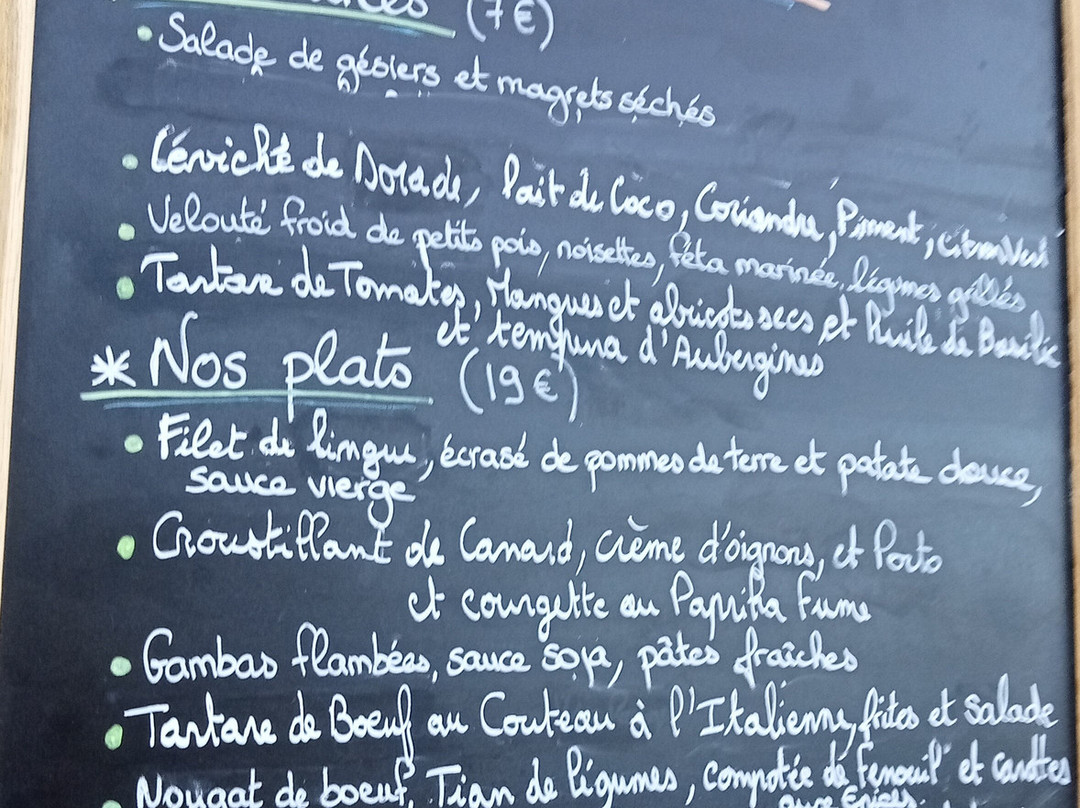 (7€)
• Salade de gésiers et magrets séchés
• Céviché de Dorade, lait de Coco, Coriandre, Piment, citron Vert
• Velouté froid de petits pois, noisettes, féta marinée, légumes grillés
• Tartare de Tomates, Mangues et abricots secs et Huile de Basilic
et tempura d'Aubergines
* Nos plats (19€)
• Filet de lingue, écrasé de pommes de terre et patate douce,
sauce vierge
• Croustillant de Canard, crème d'oignons, et Porto
et courgette au Paprika Fumé
• Gambas flambées, sauce soja, pâtes fraîches
• Tartare de Boeuf au Couteau à l'Italienne, frites et Salade
• Nougat de boeuf, Tian de légumes, compotée de fenouil et carottes